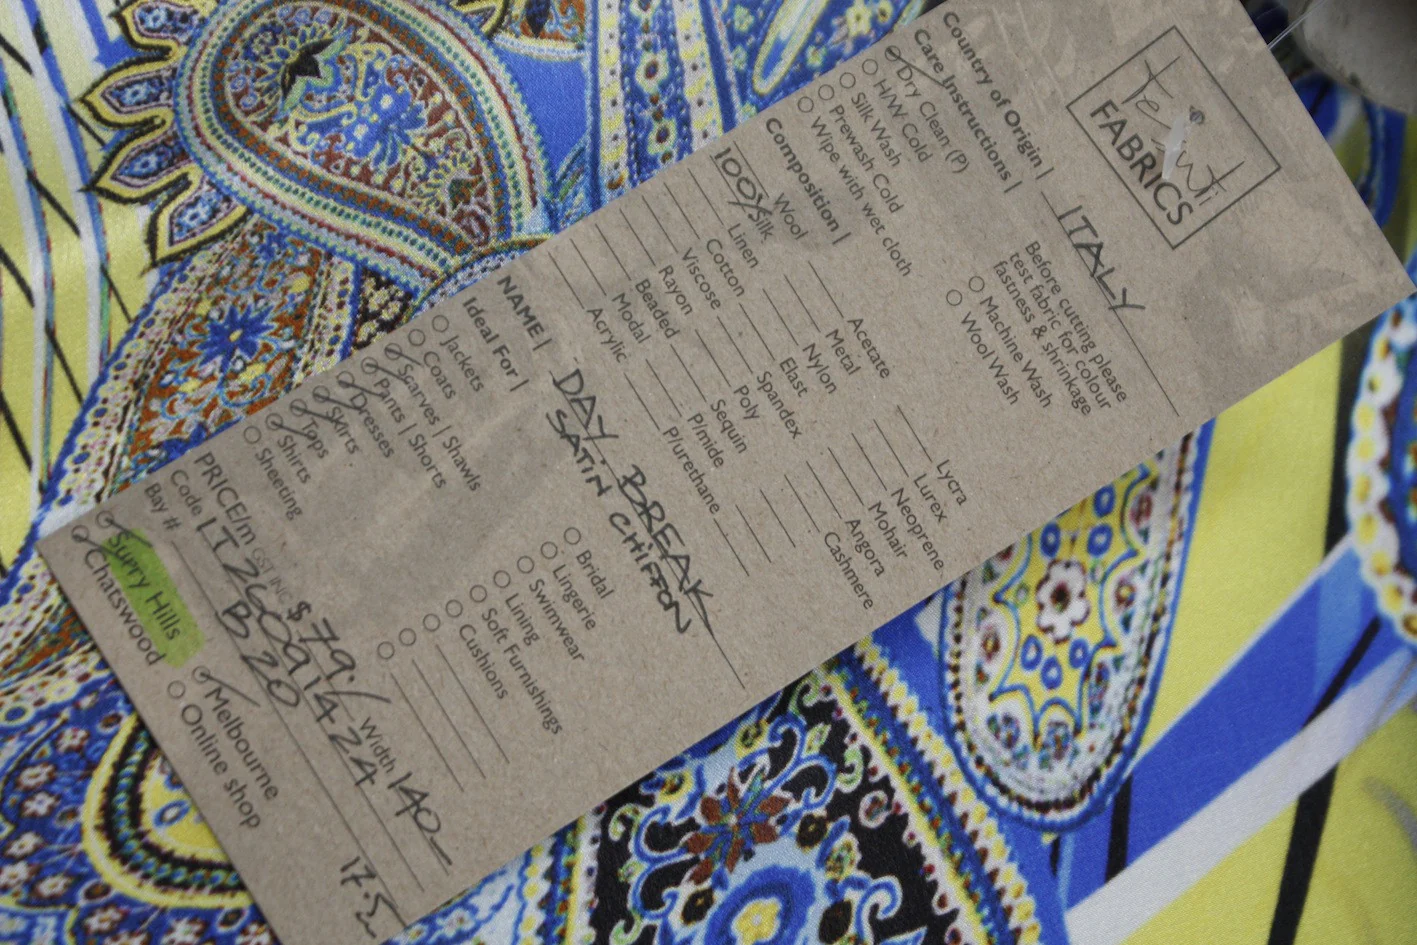 Tessuti
FABRICS
Country of Origin | ITALY
Care Instructions |
Dry Clean (P)
H/W Cold
Silk Wash
Prewash Cold
Wipe with wet cloth
Before cutting please
test fabric for colour
fastness & shrinkage
Machine Wash
Wool Wash
Composition |
Wool
100% Silk
Linen
Cotton
Viscose
Rayon
Beaded
Modal
Acrylic
Acetate
Metal
Nylon
Elast
Spandex
Poly
Sequin
P/mide
P/urethane
Lycra
Lurex
Neoprene
Mohair
Angora
Cashmere
NAME | DAY BREAK
SATIN CHIFFON
Ideal For |
Jackets
Coats
Scarves | Shawls
Pants | Shorts
Dresses
Skirts
Tops
Shirts
Sheeting
Bridal
Lingerie
Swimwear
Lining
Soft Furnishings
Cushions
PRICE/m GST INC $79.- Width 140
Code IT26091424
Bay # B20
17.5
Surry Hills
Chatswood
Melbourne
Online shop